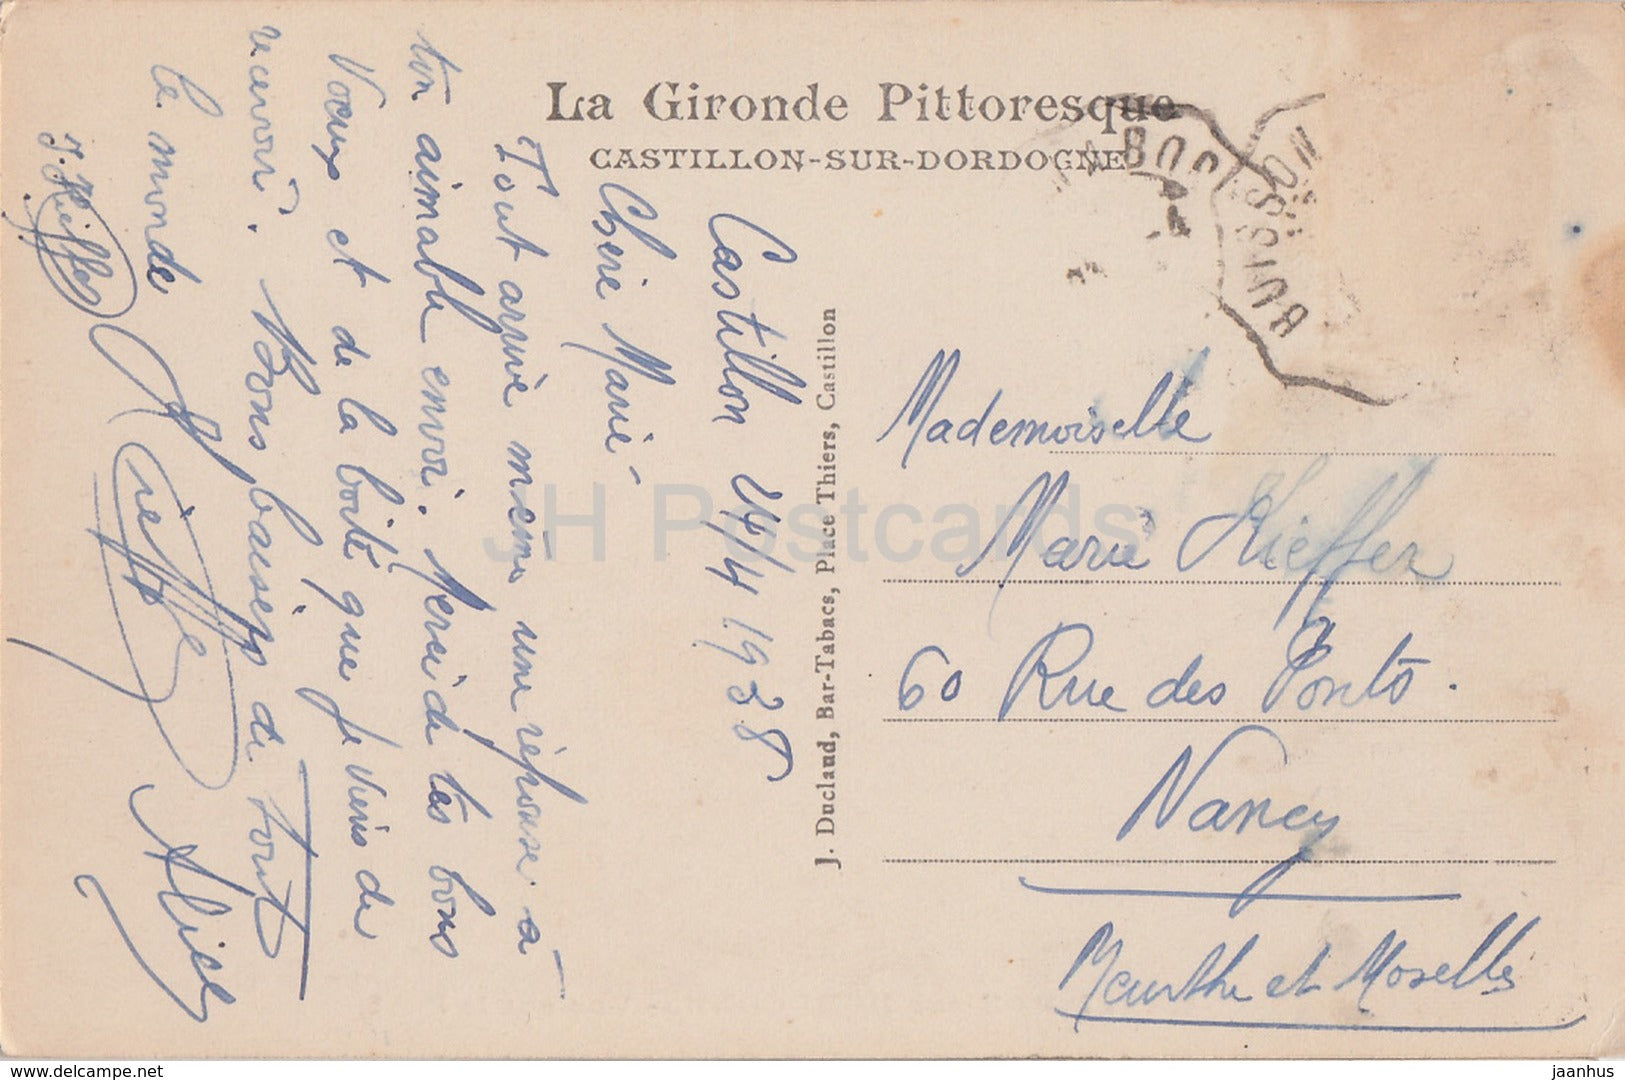 La Gironde Pittoresque
CASTILLON-SUR-DORDOGNE
Castillon 4/4 1938
Chère Marie
Tout arrive même une réponse à
ton aimable envoi. Merci de tes bons
Voeux et de la boite que je viens de
recevoir. Bons baisers de tout
le monde
J. Kieffer
Kieffer
Alice
J. Duclaud, Bar-Tabacs, Place Thiers, Castillon
BUISSON
Mademoiselle
Marie Kieffer
60 Rue des Ponts.
Nancy
Meurthe et Moselle
JH Postcards
delcampe.net
jaanhus